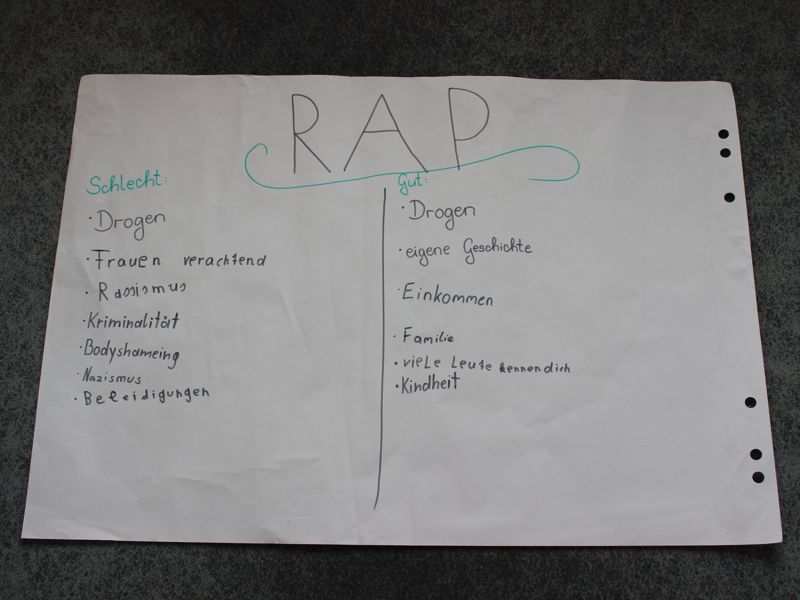 RAP
Schlecht:
· Drogen
· Frauen verachtend
· Rassismus
· Kriminalität
· Bodyshameing
· Nazismus
· Beleidigungen
Gut:
· Drogen
· eigene Geschichte
· Einkommen
· Familie
· viele Leute kennen dich
· Kindheit